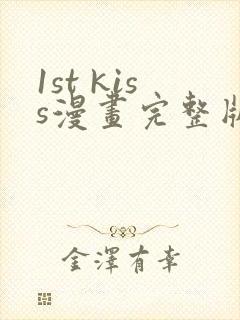 1st kis
s漫畫完整版
金澤有幸